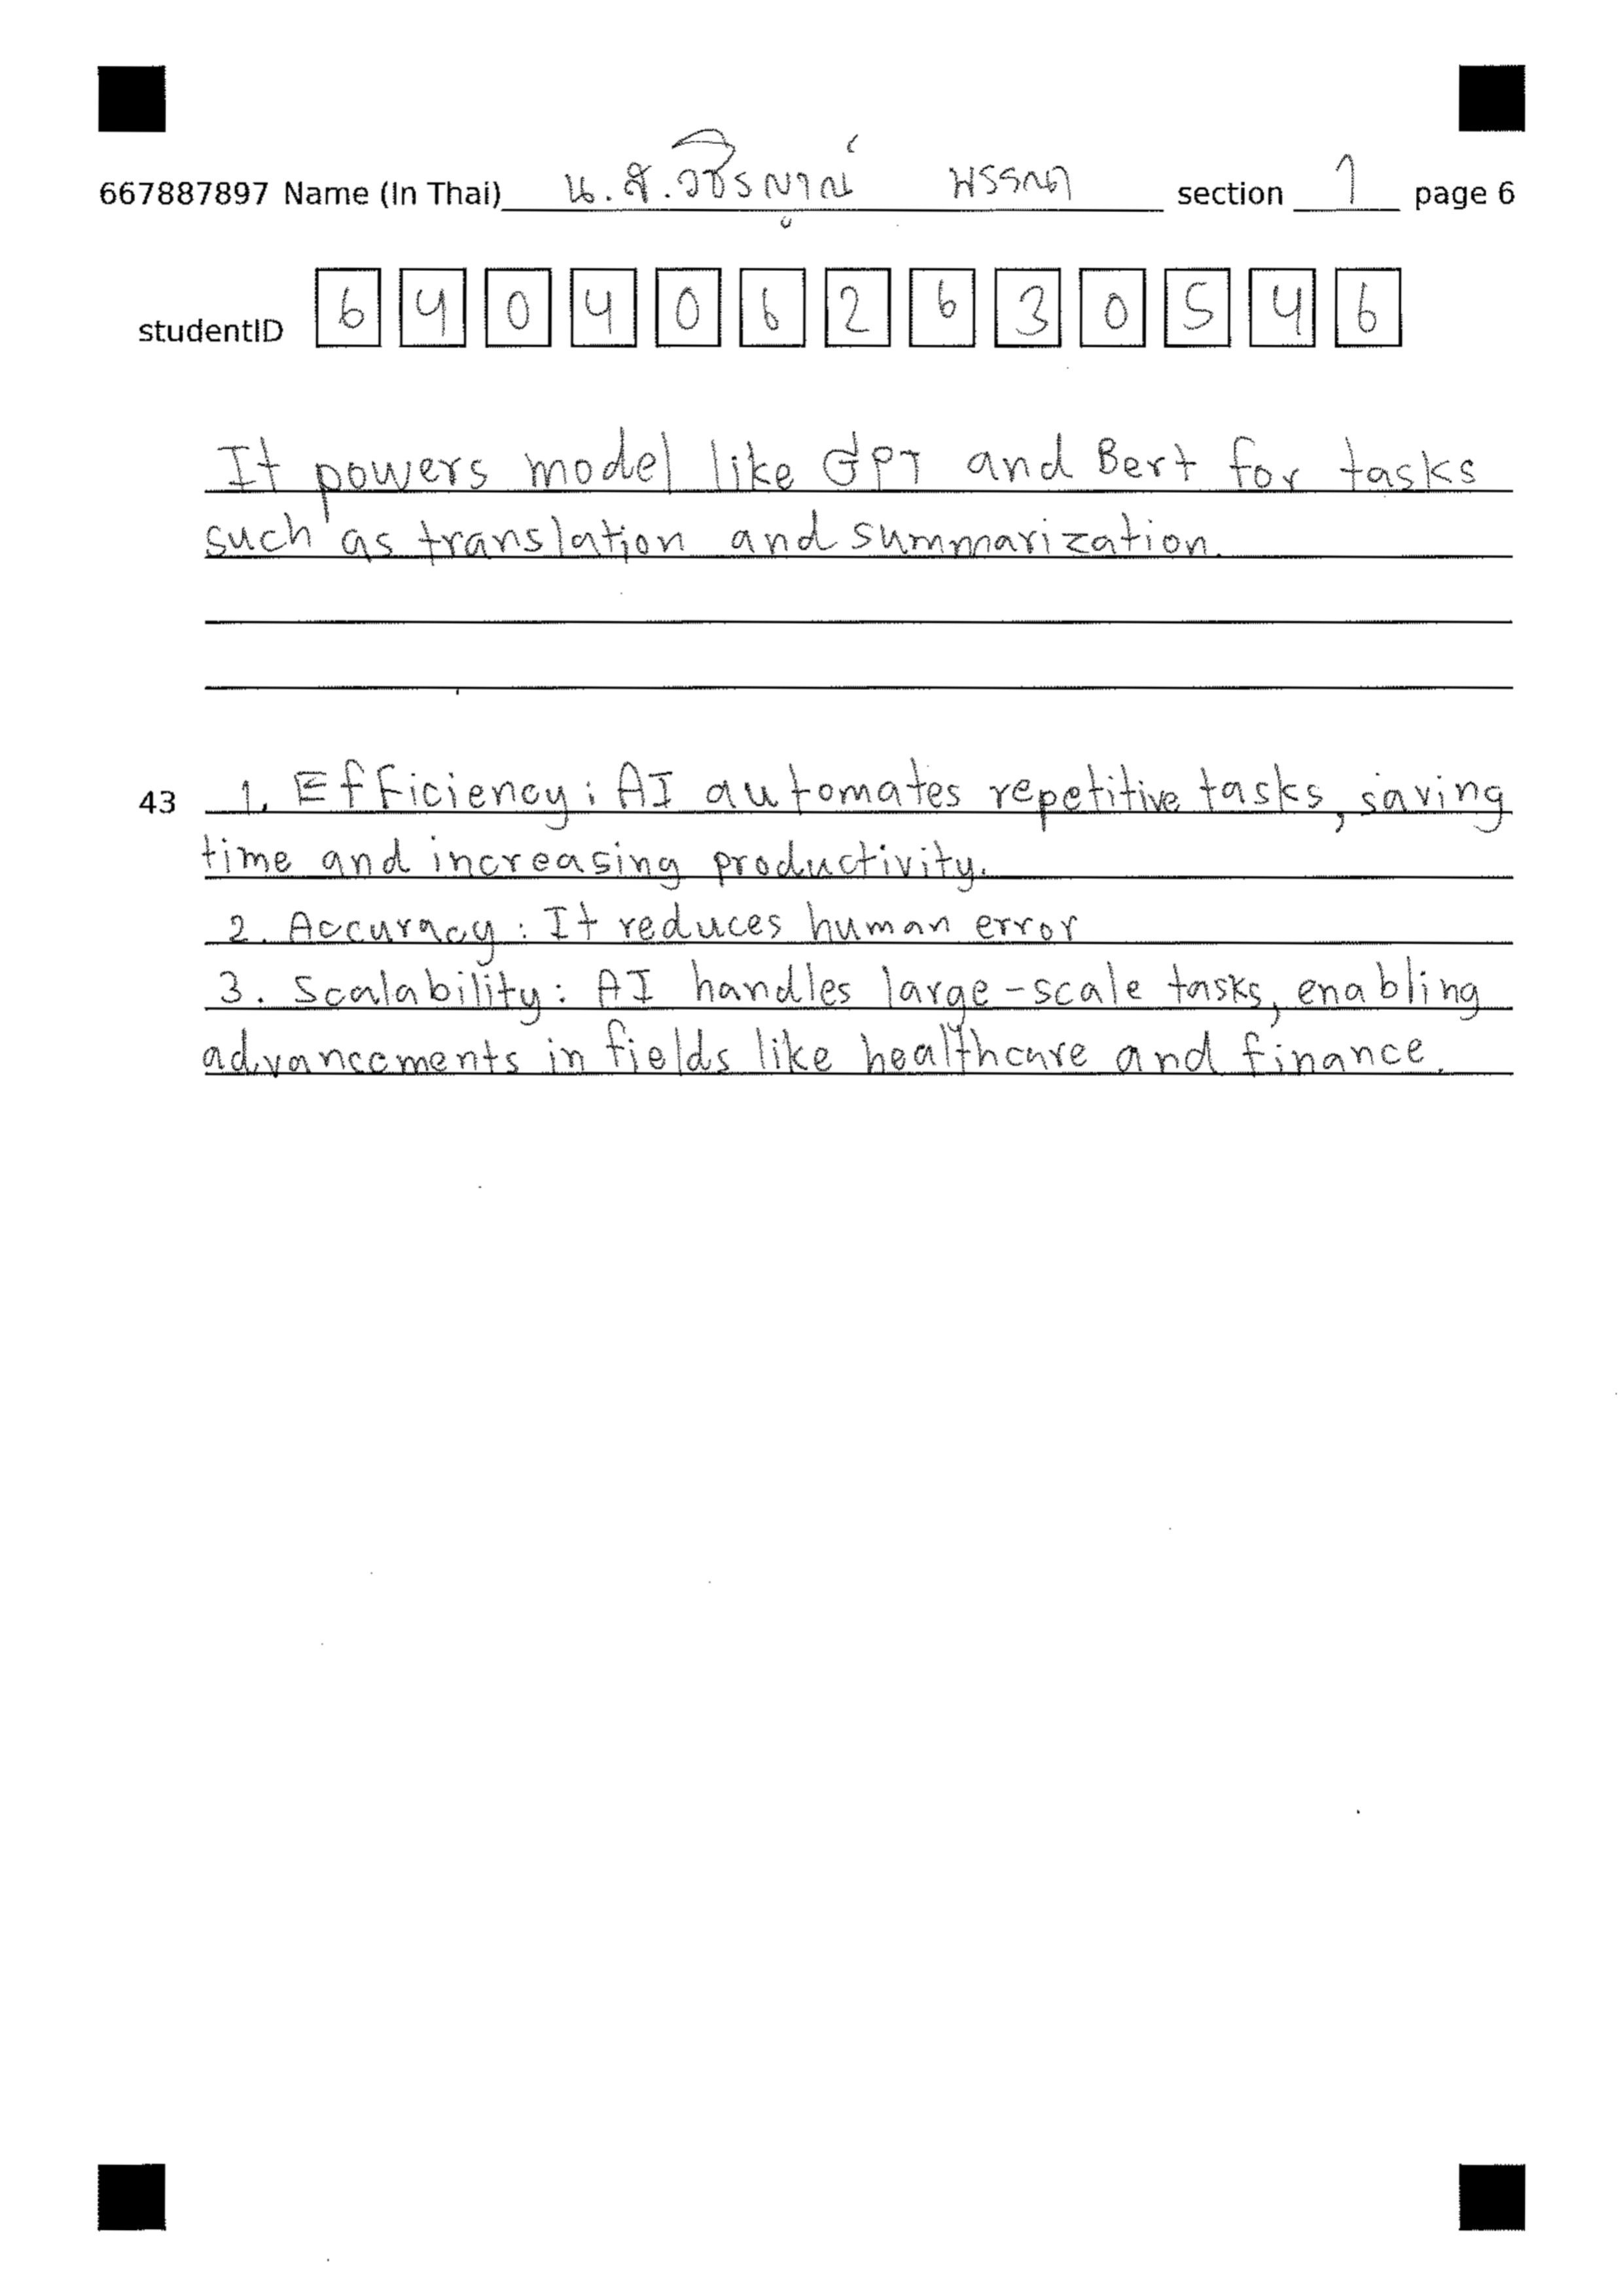 667887897 Name (In Thai) น.ส.วชิรญาณ์ พรรณา section 1 page 6
studentID 6 4 0 4 0 6 2 6 3 0 5 4 6
It powers model like GPT and Bert for tasks
such as translation and summarization.
43 1. Efficiency: AI automates repetitive tasks, saving
time and increasing productivity.
2. Accuracy: It reduces human error
3. Scalability: AI handles large-scale tasks, enabling
advancements in fields like healthcare and finance.